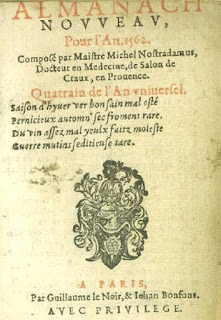 ALMANACH
NOVVEAV,
Pour l'An. 1562.
Composé par Maistre Michel Nostradamus,
Docteur en Medecine, de Salon de
Craux, en Prouence.
Quatrain de l'An vniuersel.
Saison d'hyuer ver bon sain mal esté
Pernicieux automn' sec froment rare.
Du vin assez mal yeulx faitz moleste
Guerre mutins seditieuse tare.
A PARIS,
Par Guillaume le Noir, & Iehan Bonfons.
AVEC PRIVILEGE.